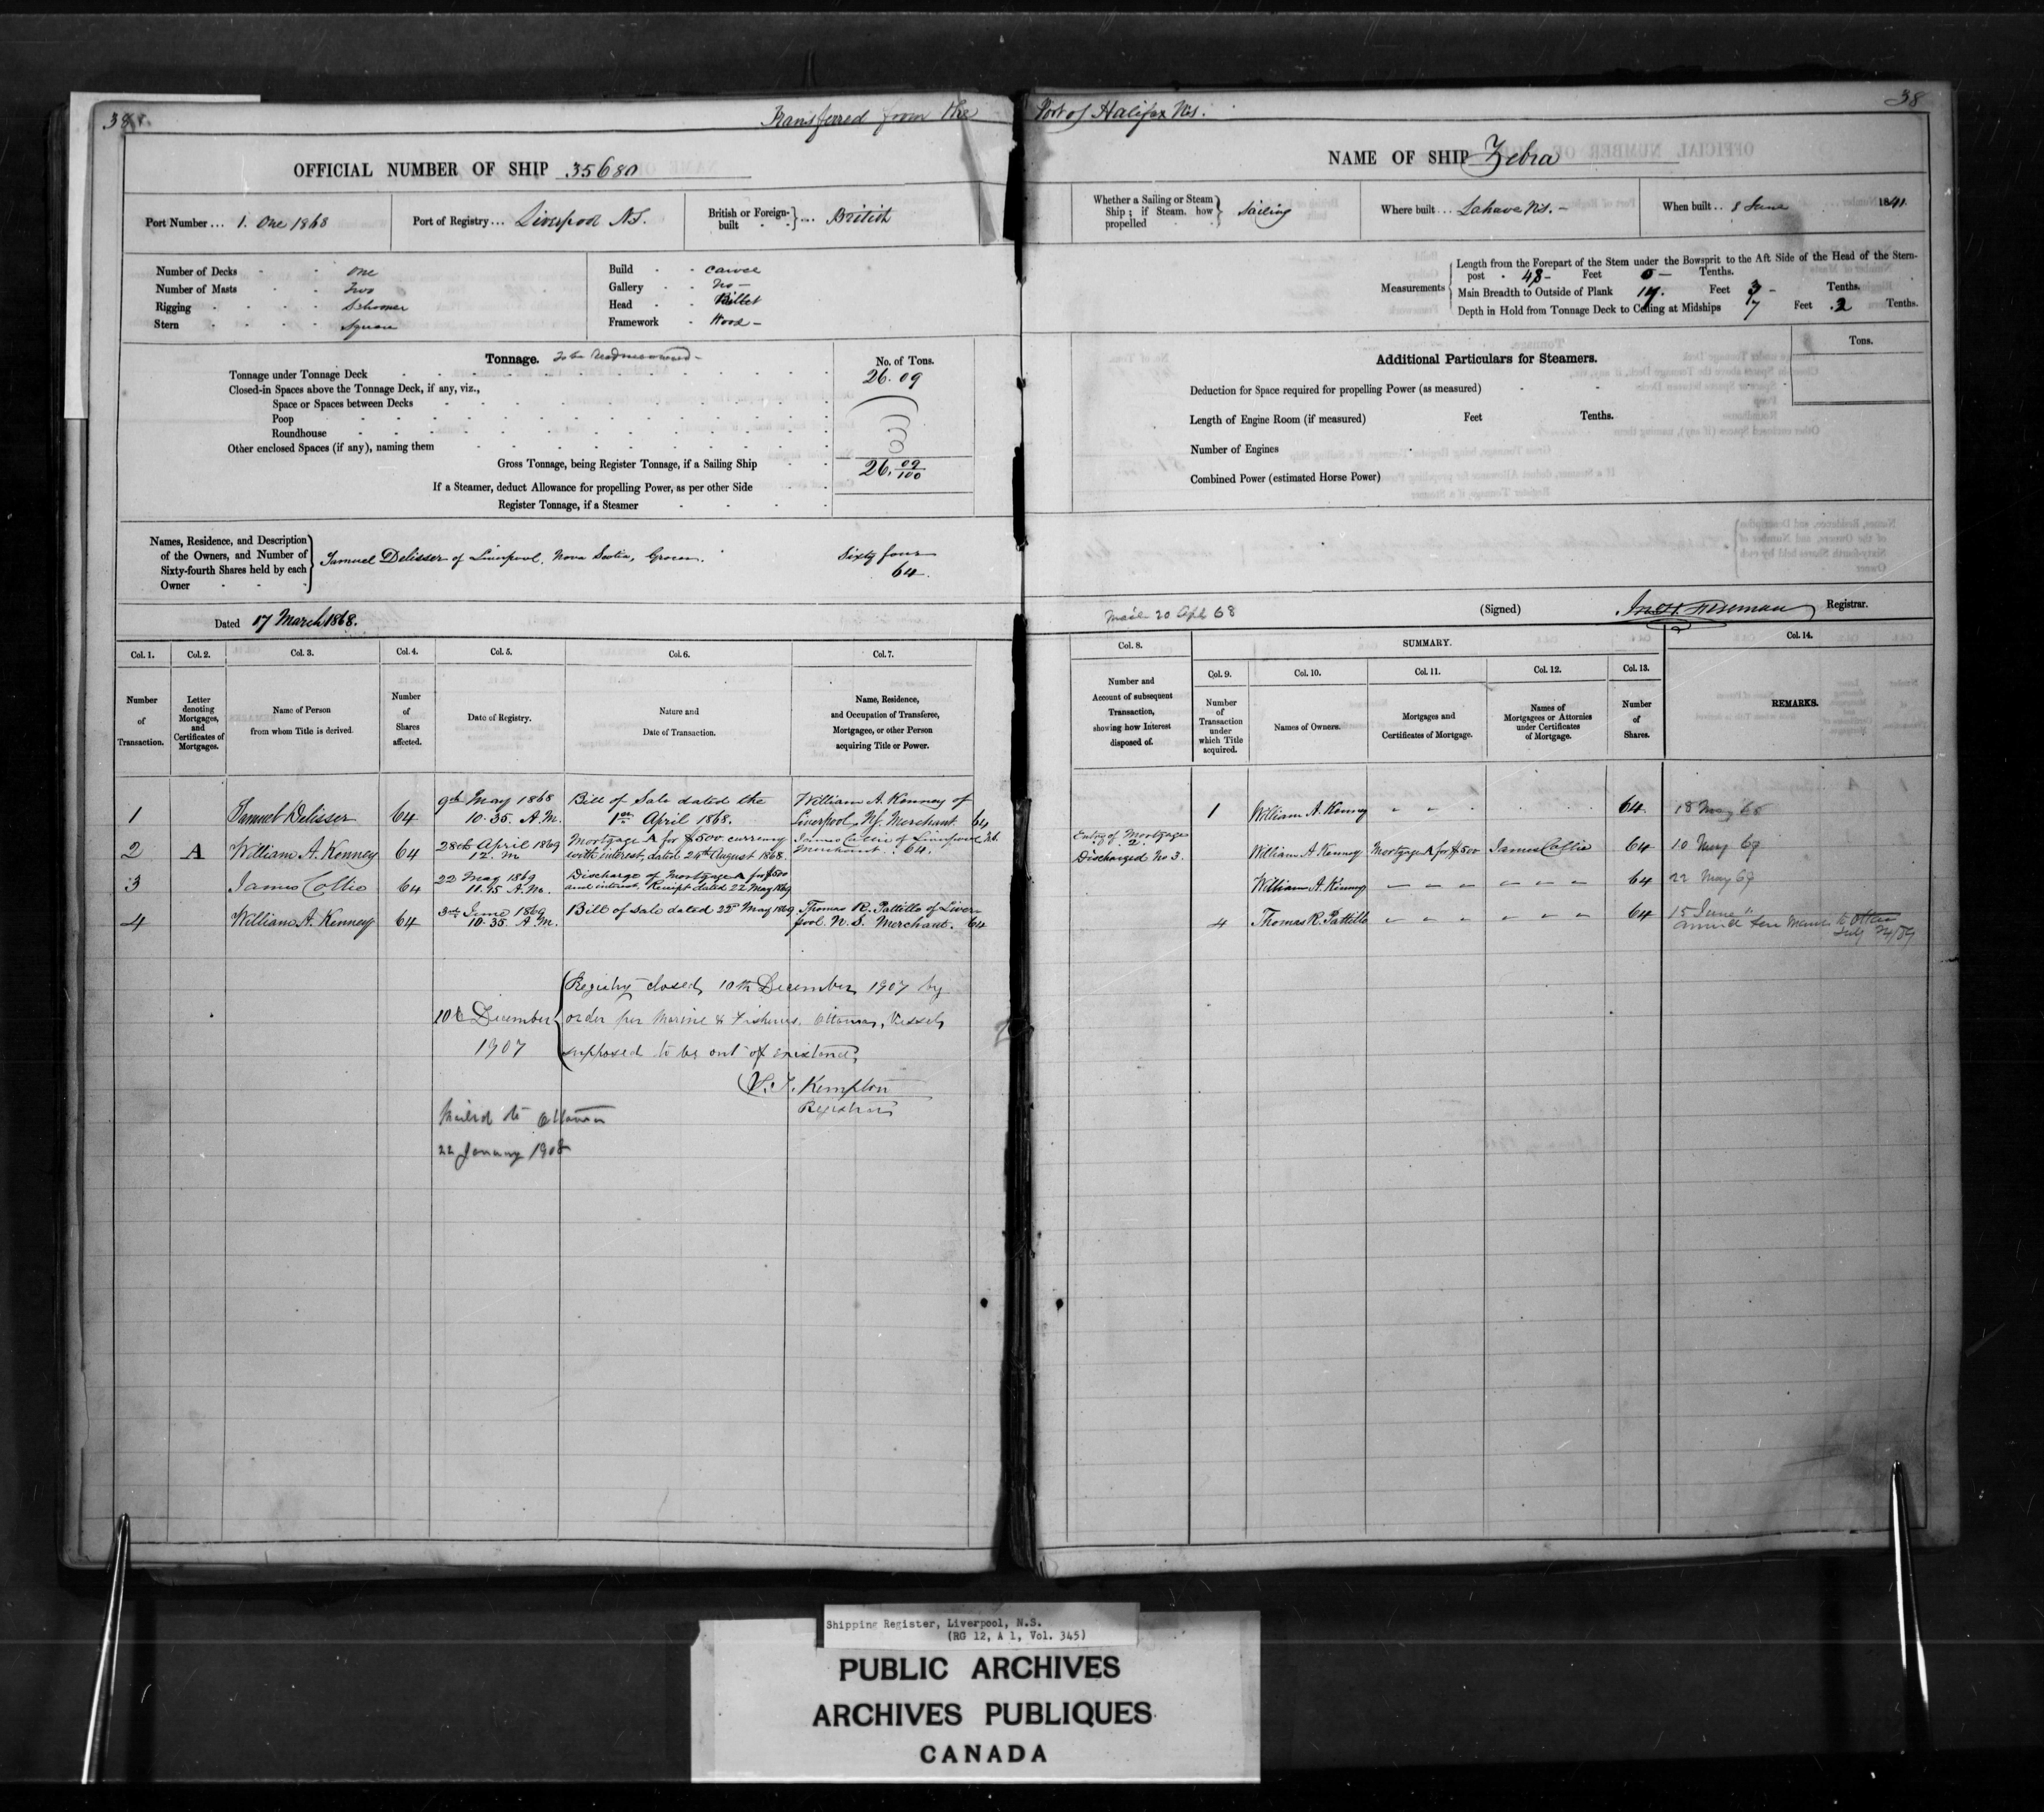 38
Transferred from the Port of Halifax N.S.
38
OFFICIAL NUMBER OF SHIP 35680
NAME OF SHIP Zebra
Port Number ... 1. One 1868
Port of Registry ... Liverpool N.S.
British or Foreign-built ... British
Whether a Sailing or Steam Ship; if Steam, how propelled } Sailing
Where built ... Lahave N.S. -
When built .. 8 June 1841.
Number of Decks - - one
Number of Masts - - Two
Rigging - - Schooner
Stern - - Square
Build - - Carvel
Gallery - - No -
Head - - Billet
Framework - Wood -
Measurements
Length from the Forepart of the Stem under the Bowsprit to the Aft Side of the Head of the Stern-
post - 48 - Feet 0 - Tenths.
Main Breadth to Outside of Plank 14. Feet 3 - Tenths.
Depth in Hold from Tonnage Deck to Ceiling at Midships 7 Feet .2 Tenths.
Tonnage. To be Readmeasured -
No. of Tons.
Tonnage under Tonnage Deck 26.09
Closed-in Spaces above the Tonnage Deck, if any, viz.,
Space or Spaces between Decks
Poop
Roundhouse
Other enclosed Spaces (if any), naming them
Gross Tonnage, being Register Tonnage, if a Sailing Ship 26. 09/100
If a Steamer, deduct Allowance for propelling Power, as per other Side
Register Tonnage, if a Steamer
Additional Particulars for Steamers.
Tons.
Deduction for Space required for propelling Power (as measured)
Length of Engine Room (if measured) Feet Tenths.
Number of Engines
Combined Power (estimated Horse Power)
Names, Residence, and Description
of the Owners, and Number of
Sixty-fourth Shares held by each
Owner
Samuel Delisser of Liverpool, Nova Scotia, Grocer. Sixty four
64.
Dated 17 March 1868.
20 Apl 68
(Signed) Freeman Registrar.
Col. 1. Col. 2. Col. 3. Col. 4. Col. 5. Col. 6. Col. 7. Col. 8. SUMMARY. Col. 14.
Col. 9. Col. 10. Col. 11. Col. 12. Col. 13.
Number of Transaction.
Letter denoting Mortgages, and Certificates of Mortgages.
Name of Person from whom Title is derived.
Number of Shares affected.
Date of Registry.
Nature and Date of Transaction.
Name, Residence, and Occupation of Transferee, Mortgagee, or other Person acquiring Title or Power.
Number and Account of subsequent Transaction, showing how Interest disposed of.
Number of Transaction under which Title acquired.
Names of Owners.
Mortgages and Certificates of Mortgage.
Names of Mortgagees or Attornies under Certificates of Mortgage.
Number of Shares.
REMARKS.
1 Samuel Delisser 64 9th May 1868 10.35. A.M. Bill of Sale dated the 1st April 1868. William A. Kenney of Liverpool, N.S. Merchant. 64
1 William A. Kenney 64 18 May 68
2 A William A. Kenney 64 28th April 1869 12. M Mortgage A for $500 currency with interest, dated 24th August 1868. James Collie of Liverpool N.S. Merchant. 64.
Entry of Mortgage 2 Discharged No 3.
William A. Kenney Mortgage A for $500 James Collie 64 10 May 69
3 James Collie 64 22 May 1869 11.45 A.M. Discharge of Mortgage A for $500 and interest. Receipt dated 22 May 1869
William A. Kenney 64 22 May 69
4 William A. Kenney 64 3rd June 1869 10.35. A.M. Bill of Sale dated 22d May 1869 Thomas R. Pattillo of Liverpool N.S. Merchant. 64
4 Thomas R. Pattillo 64 15 June "
July
Registry closed, 10th December, 1907 by
10th December order per Marine & Fisheries, Ottawa, Vessel,
1907 supposed to be out of existence,
Kempton
Registrar
Mailed to Ottawa
22 January 1908
Shipping Register, Liverpool, N.S.
(RG 12, A 1, Vol. 345)
PUBLIC ARCHIVES
ARCHIVES PUBLIQUES
CANADA